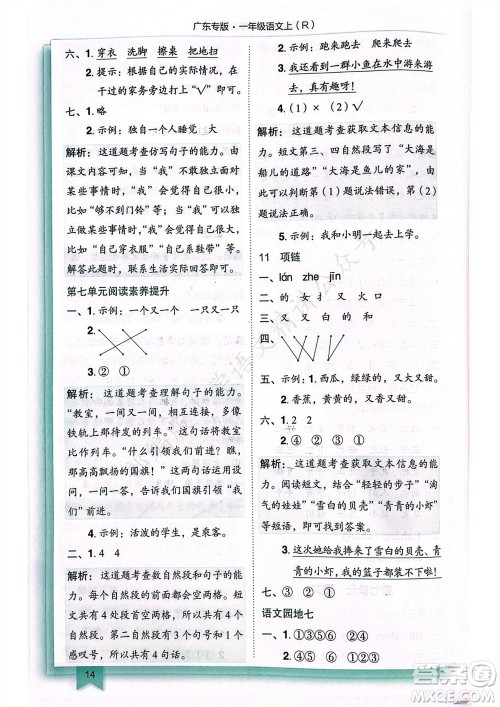 广东专版·一年级语文上（R）
六、1. 穿衣 洗脚 擦桌 把地扫
2. 提示：结合自己的实际情况，在
干过的家务旁边打上“√”即可。
七、1. 略
2. 示例：一个人睡觉 大
解析：这道题考查仿写句子的能力。由
课文内容可知，“我”独自做
某些事情时，“我”会觉得自己很小。
比如“够不到门铃”等；而“我”独立
做某些事情时，“我”会觉得自己很
大。如“自己穿衣服”“自己系鞋带”等。
答题时，联系生活实际回答即可。
第七单元阅读素养提升
一、1. 示例：一个又一个 一只又一只
2.
3. ② ①
解析：这道题考查理解句子的能力。
“教室，一间又一间，相互连接，多像
铁轨上奔驰的列车。”这句话运用了
比喻。“什么引领我们前进！瞧，
那高高飘扬的国旗！”这句话自问自
答，告诉我们是“国旗”引领“我
们”前进。
4. 示例：活波的学生，是乘客。
二、1. 4 4
解析：这道题考查数自然段和句子的能
力。每个自然段开头都会空两格。短
文共有4个自然段首空两格，所以共有
4个自然段。第二自然段有3个句号和1个
感叹号，所以共有4句话。
2. 示例：跑来跑去 爬来爬去
示例：看到一群小鱼在水中游来游
去，真有趣呀！
3. （1）×（2）√
解析：这道题考查获取文本信息的能
力。短文第三、四自然段写了“大海是
船儿的道路”“大海是鱼儿的家”，由
此可以判断第（1）题说法错误，第（2）
题说法正确。
4. 示例：我和小明一起去上学。
11 项链
一、lán zhe jīn
二、的 女 寸 又 火 口
三、又 火
四、
五、1. 示例：西瓜，绿绿的，又大又甜。
2. 香蕉，黄黄的，又香又甜。
六、1. 2 2
2. ④ ① ② ③
解析：这道题考查获取文本信息的能
力。阅读短文，结合“轻轻的步子”“淘
气的娃娃”“雪白的贝壳”“青青的小虾”
等短语，即可找到答案。
3. 这次她看我捧来了雪白的贝壳、青
青的小虾，可真高兴啊！
七、③ ② ①
语文园地七
一、①③⑤⑥ ②④⑦
二、①②⑤ ③④⑥
14
答案圈